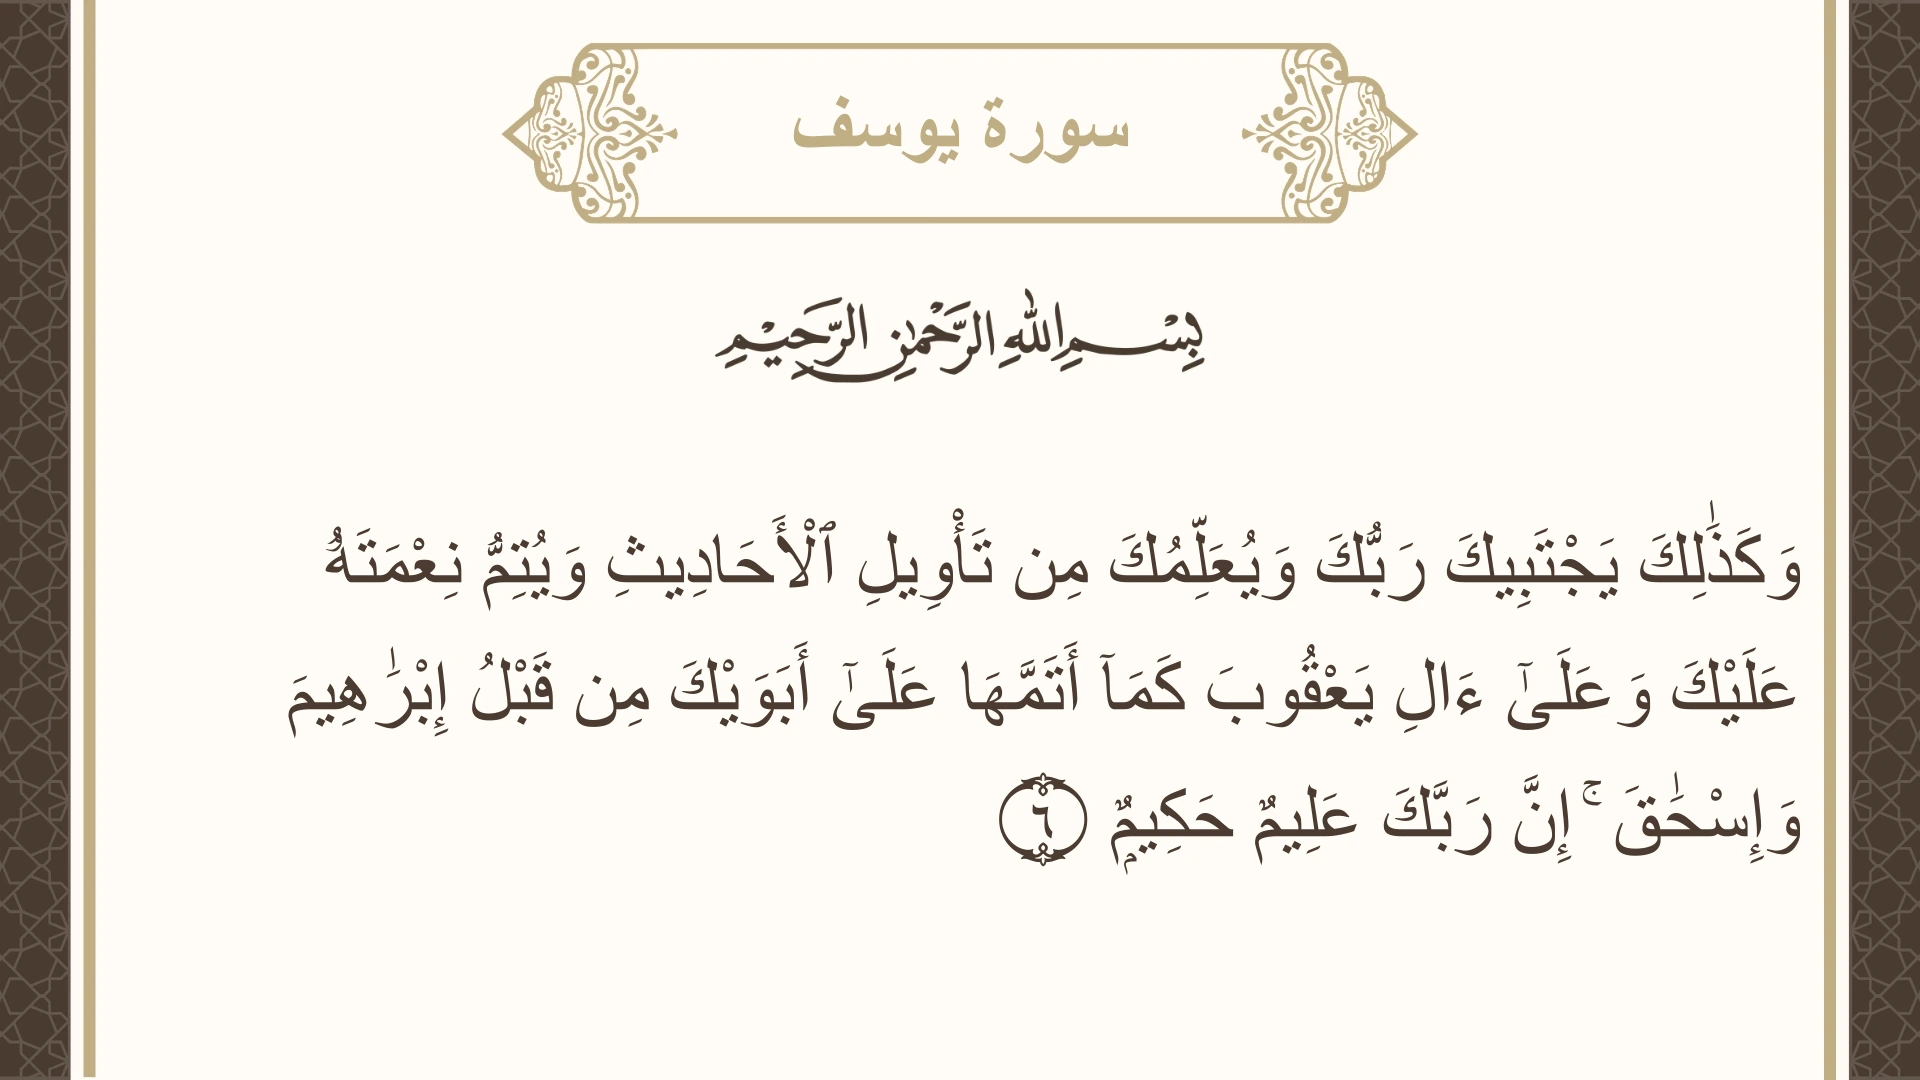 سورة يوسف
بِسْمِ اللهِ الرَّحْمٰنِ الرَّحِيْمِ
وَكَذَٰلِكَ يَجْتَبِيكَ رَبُّكَ وَيُعَلِّمُكَ مِن تَأْوِيلِ ٱلْأَحَادِيثِ وَيُتِمُّ نِعْمَتَهُۥ
عَلَيْكَ وَعَلَىٰٓ ءَالِ يَعْقُوبَ كَمَآ أَتَمَّهَا عَلَىٰٓ أَبَوَيْكَ مِن قَبْلُ إِبْرَٰهِيمَ
وَإِسْحَٰقَ ۚ إِنَّ رَبَّكَ عَلِيمٌ حَكِيمٌۭ ٦